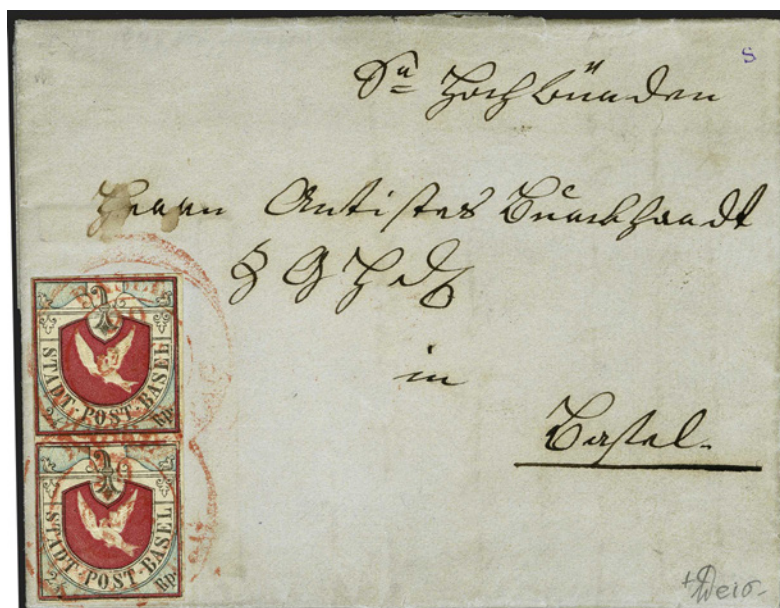 S
Sr Hochwürden
Herrn Antistes Burckhardt
in
Basel.
STADT-POST-BASEL
2½ Rp.
STADT-POST-BASEL
2½ Rp.